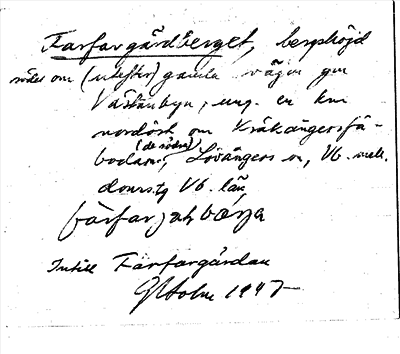 Farfargårdberget, bergshöjd
söder om (utefter) gamla vägen gm
Västanbyn, ung. en km
nordöst om Kräkångersfä-
bodarna, (de södra) Lövångers sn, Vb. mell.
doms.tg Vb. län,
(fàrfar)ạḷṣ bærja
Intill Farfargårdan
G Holm 1947